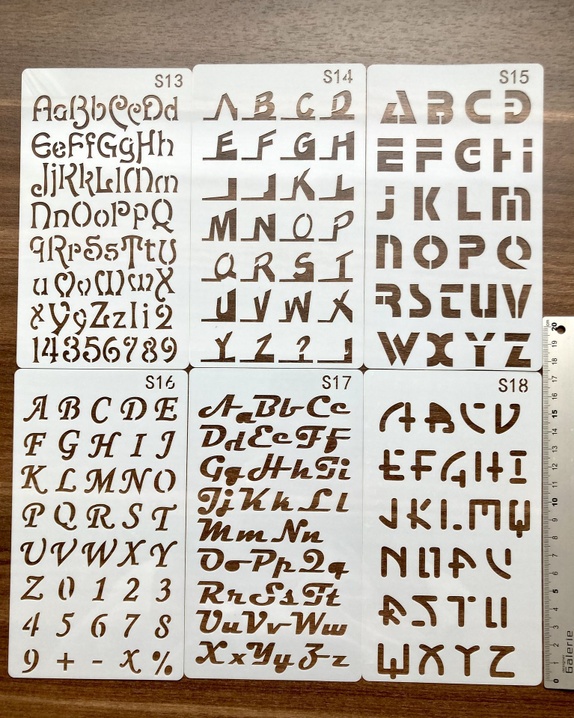 S13
AaBbCcDd
EeFfGgHh
JjKkLlMm
NnOoPpQ
qRrSsTtU
uQvWwX
xYyZzIi2
14356789
S14
A B C D
E F G H
I J K L
M N O P
Q R S T
U V W X
Y Z ? !
S15
A B C D
E F G H i
j K L M
n O P Q
R S T U V
W X Y Z
S16
A B C D E
F G H I J
K L M N O
P Q R S T
U V W X Y
Z 0 1 2 3
4 5 6 7 8
9 + - × %
S17
AaBbCc
DdEeFf
GgHhIi
JjKkLl
MmNn
OoPpQq
RrSsTt
UuVvWw
XxYyZz
S18
A B C D
E F G H I
J K L M W
N O P V
R S T U
W X Y Z
20
19
18
17
16
15
14
13
12
11
10
9
8
7
6
5
4
3
2
1
0
Galerie